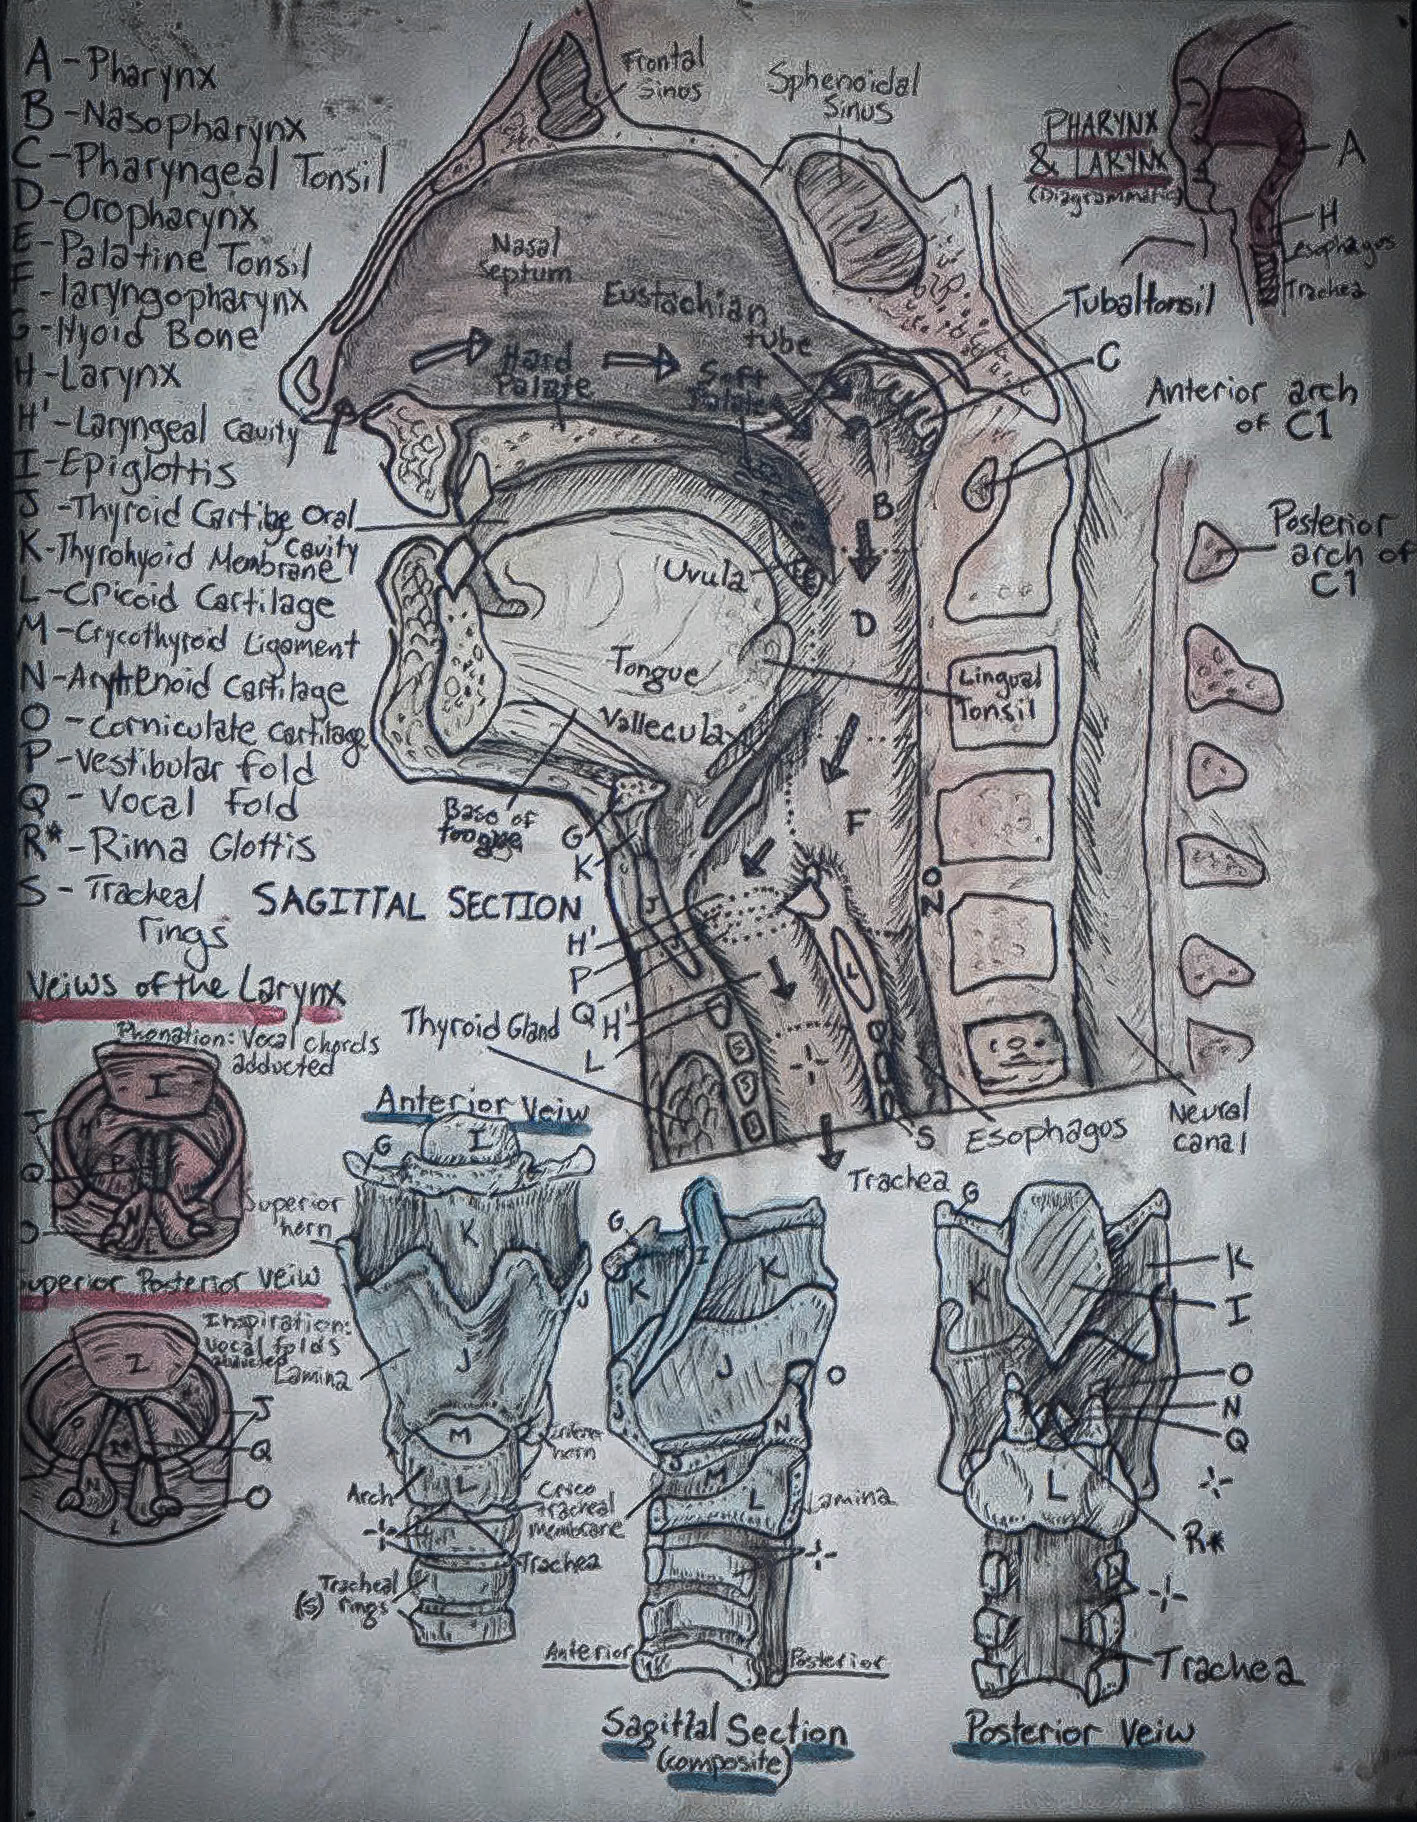 A - Pharynx
B - Nasopharynx
C - Pharyngeal Tonsil
D - Oropharynx
E - Palatine Tonsil
F - laryngopharynx
G - Hyoid Bone
H - Larynx
H' - Laryngeal cavity
I - Epiglottis
J - Thyroid Cartilge
K - Thyrohyoid Membrane
L - Cricoid Cartilage
M - Crycothyroid Ligament
N - Arytenoid Cartilage
O - Corniculate cartilage
P - Vestibular fold
Q - Vocal fold
R* - Rima Glottis
S - Tracheal
rings
SAGITTAL SECTION
Frontal
Sinus
Sphenoidal
Sinus
PHARYNX
& LARYNX
(Diagrammatic)
A
H
Esophagus
Trachea
Nasal
Septum
Eustachian
tube
Hard
Palate
Soft
Palate
Tubal tonsil
C
Anterior arch
of C1
Posterior
arch of
C1
Oral
cavity
B
Uvula
E
D
Tongue
Lingual
Tonsil
Vallecula
Base of
tongue
G
K
F
J
J
O
N
H'
P
Q
H'
L
L
Thyroid Gland
S
S
S
S
Esophagus
Neural
canal
Trachea
Veiws of the Larynx
Phonation: Vocal chords
adducted
I
J
H'
Q
P
O
N
L
Superior Posterior Veiw
Inspiration:
Vocal folds
abducted
I
J
Q
R*
N
O
L
Anterior Veiw
G
I
Superior
horn
K
J
J
Lamina
M
horn
Arch
L
Crico
tracheal
membrane
Trachea
Tracheal
(S) rings
G
I
K
K
J
O
J
N
J
M
L
Lamina
Anterior
Posterior
Sagittal Section
(composite)
G
K
K
I
O
N
Q
L
R*
Trachea
Posterior Veiw